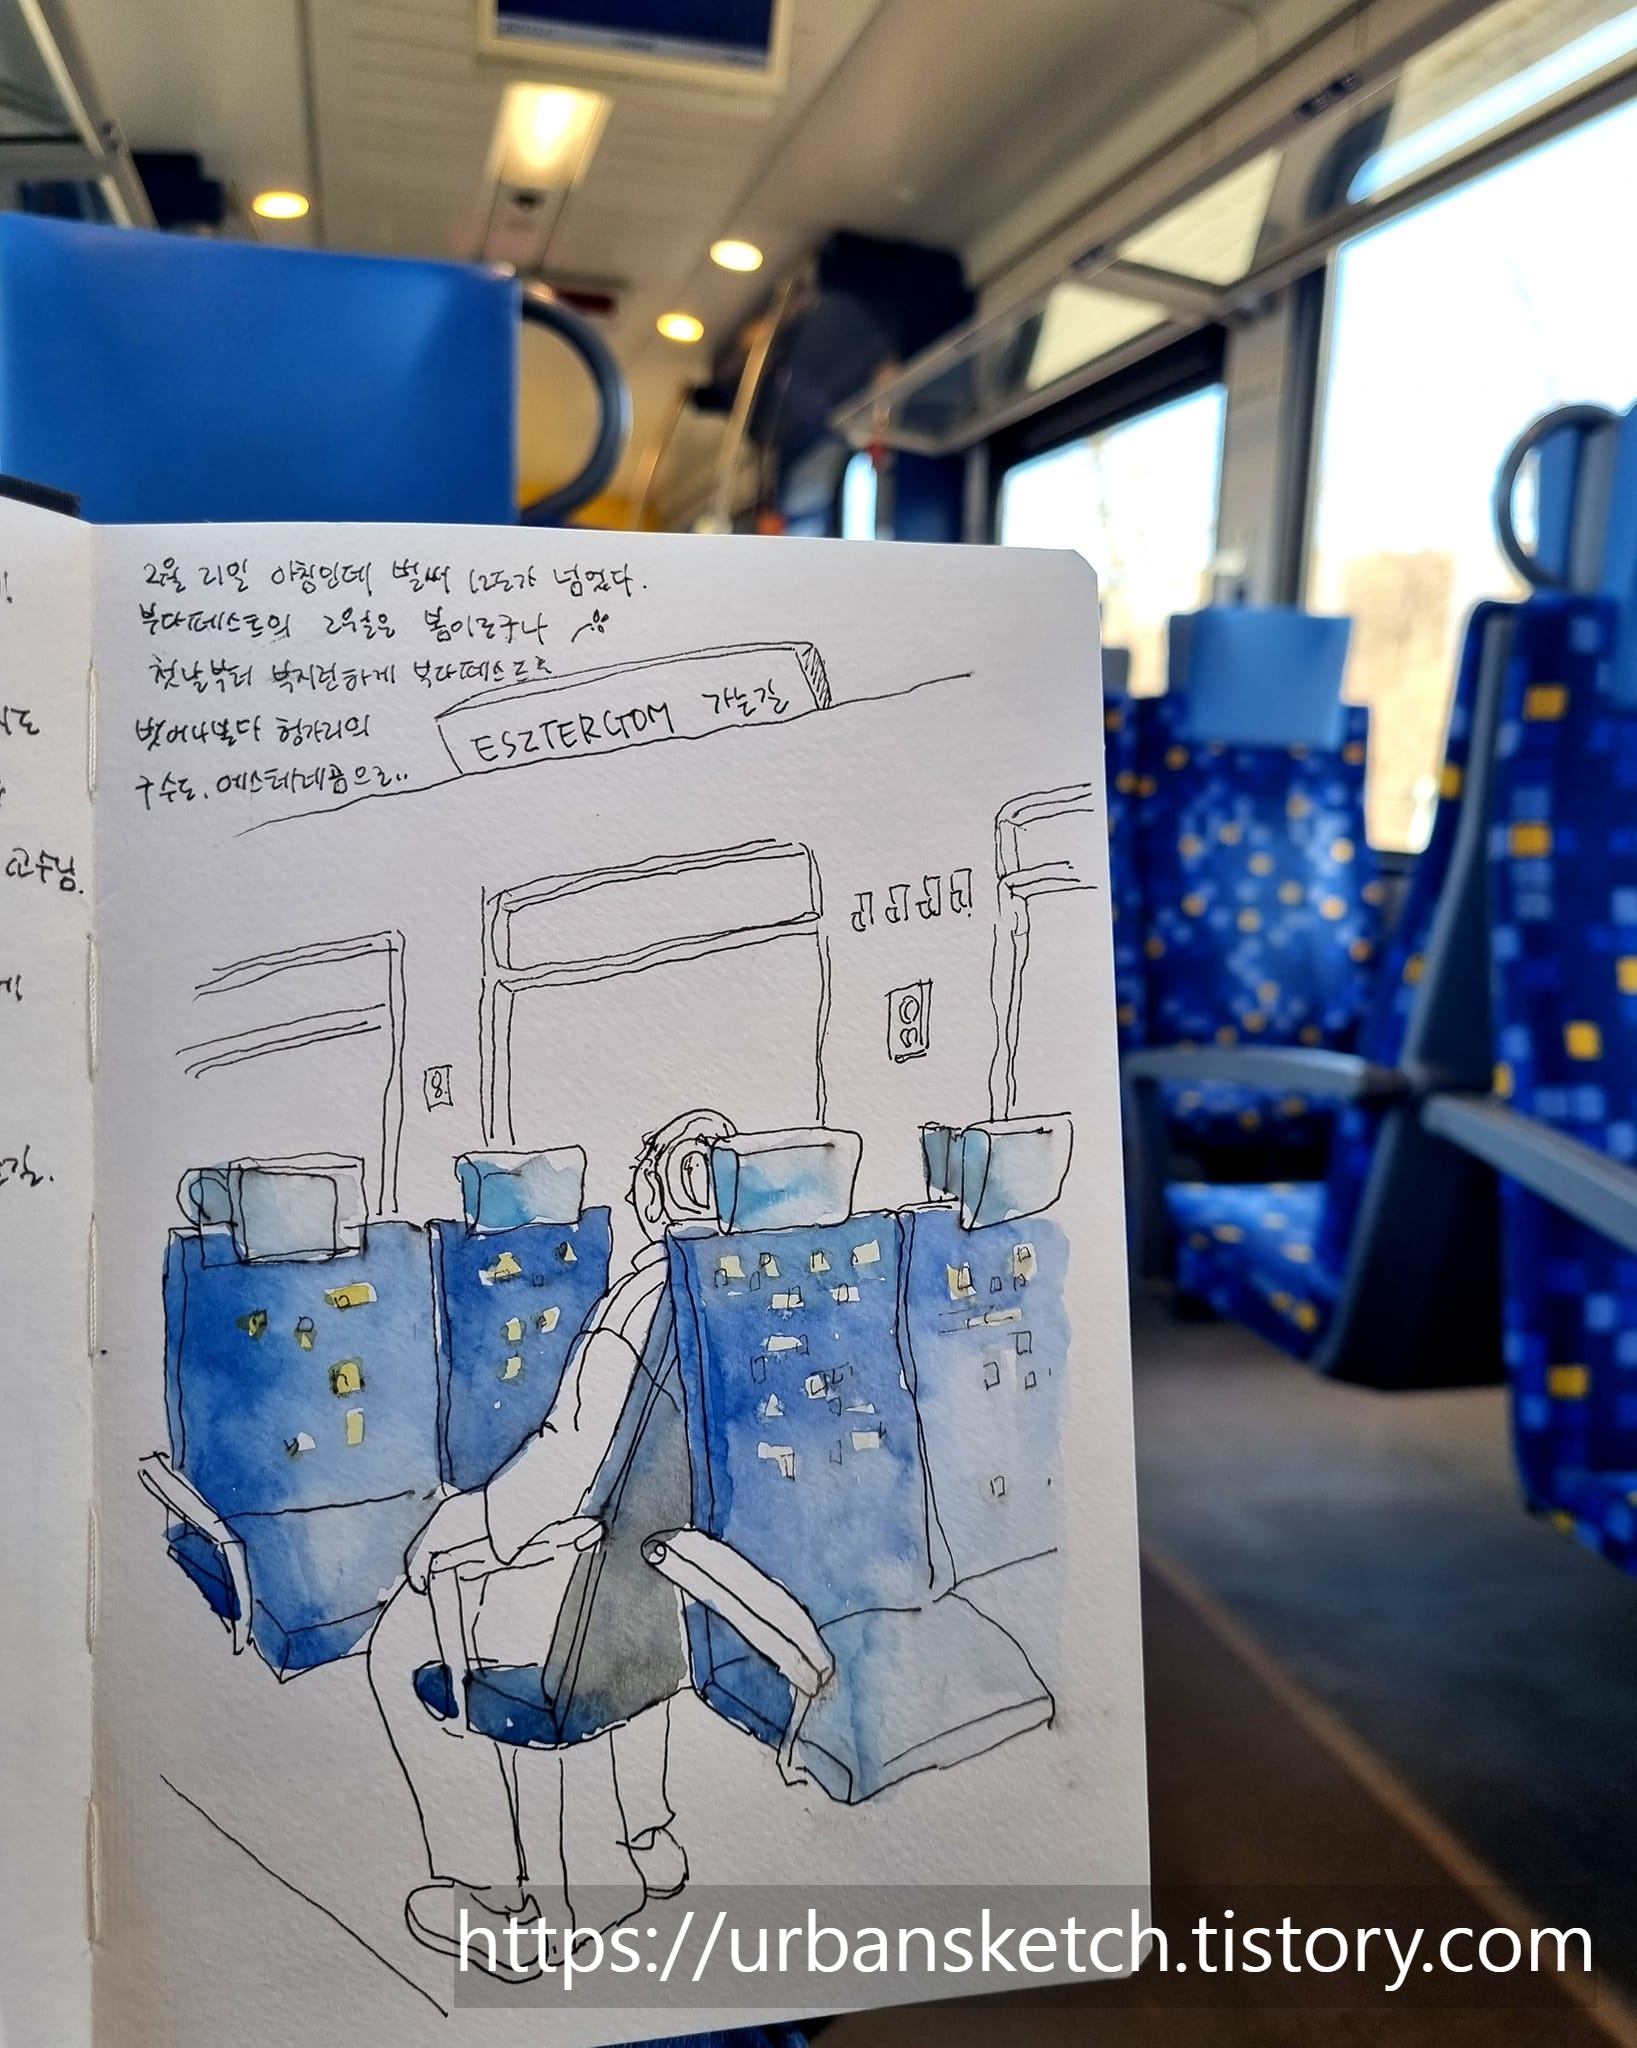 2월 21일 아침인데 벌써 12도가 넘었다.
부다페스트의 2월은 봄이로구나
첫날부터 부지런하게 부다페스트를
벗어나본다 헝가리의
구수도. 에스테르곰으로..
ESZTERGOM 가는길
고수님.
https://urbansketch.tistory.com